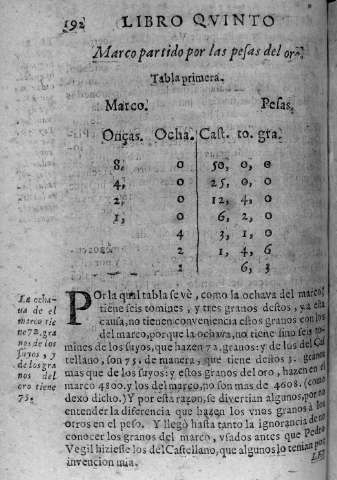 192 LIBRO QVINTO
Marco partido por las pesas del oro.
Tabla primera.
Marco. Pesas.
Onças. Ocha. Cast. to. gra.
8, 0 50, 0, 0
4, 0 25, 0, 0
2, 0 12, 4, 0
1, 0 6, 2, 0
4 3, 1, 0
2 1, 4, 6
1 6, 3
La ocha-
ua de el
marco tie
ne 72, gra
nos de los
suyos, y
de los gra
nos del
oro tiene
75.
POr la qual tabla se vè, como la ochava del marco
tiene seis tomines, y tres granos destos, y a esta
causa, no tienen conveniencia estos granos con los
del marco, porque la ochava, no tiene sino seis to
mines de los suyos, que hazen 72, granos: y de los del Cas
tellano, son 75, de manera, que tiene destos 3. granos
mas que de los suyos: y estos granos del oro, hazen en el
marco 4800. y los del marco, no son mas de 4608. (como
dexo dicho.) Y por esta razon, se divertian algunos, por no
entender la diferencia que hazen los vnos granos à los
otros en el peso. Y llegò hasta tanto la ignorancia de no
conocer los granos del marco, vsados antes que Pedro
Vegil hiziesse los del Castellano, que algunos lo tenian por
invencion mia.